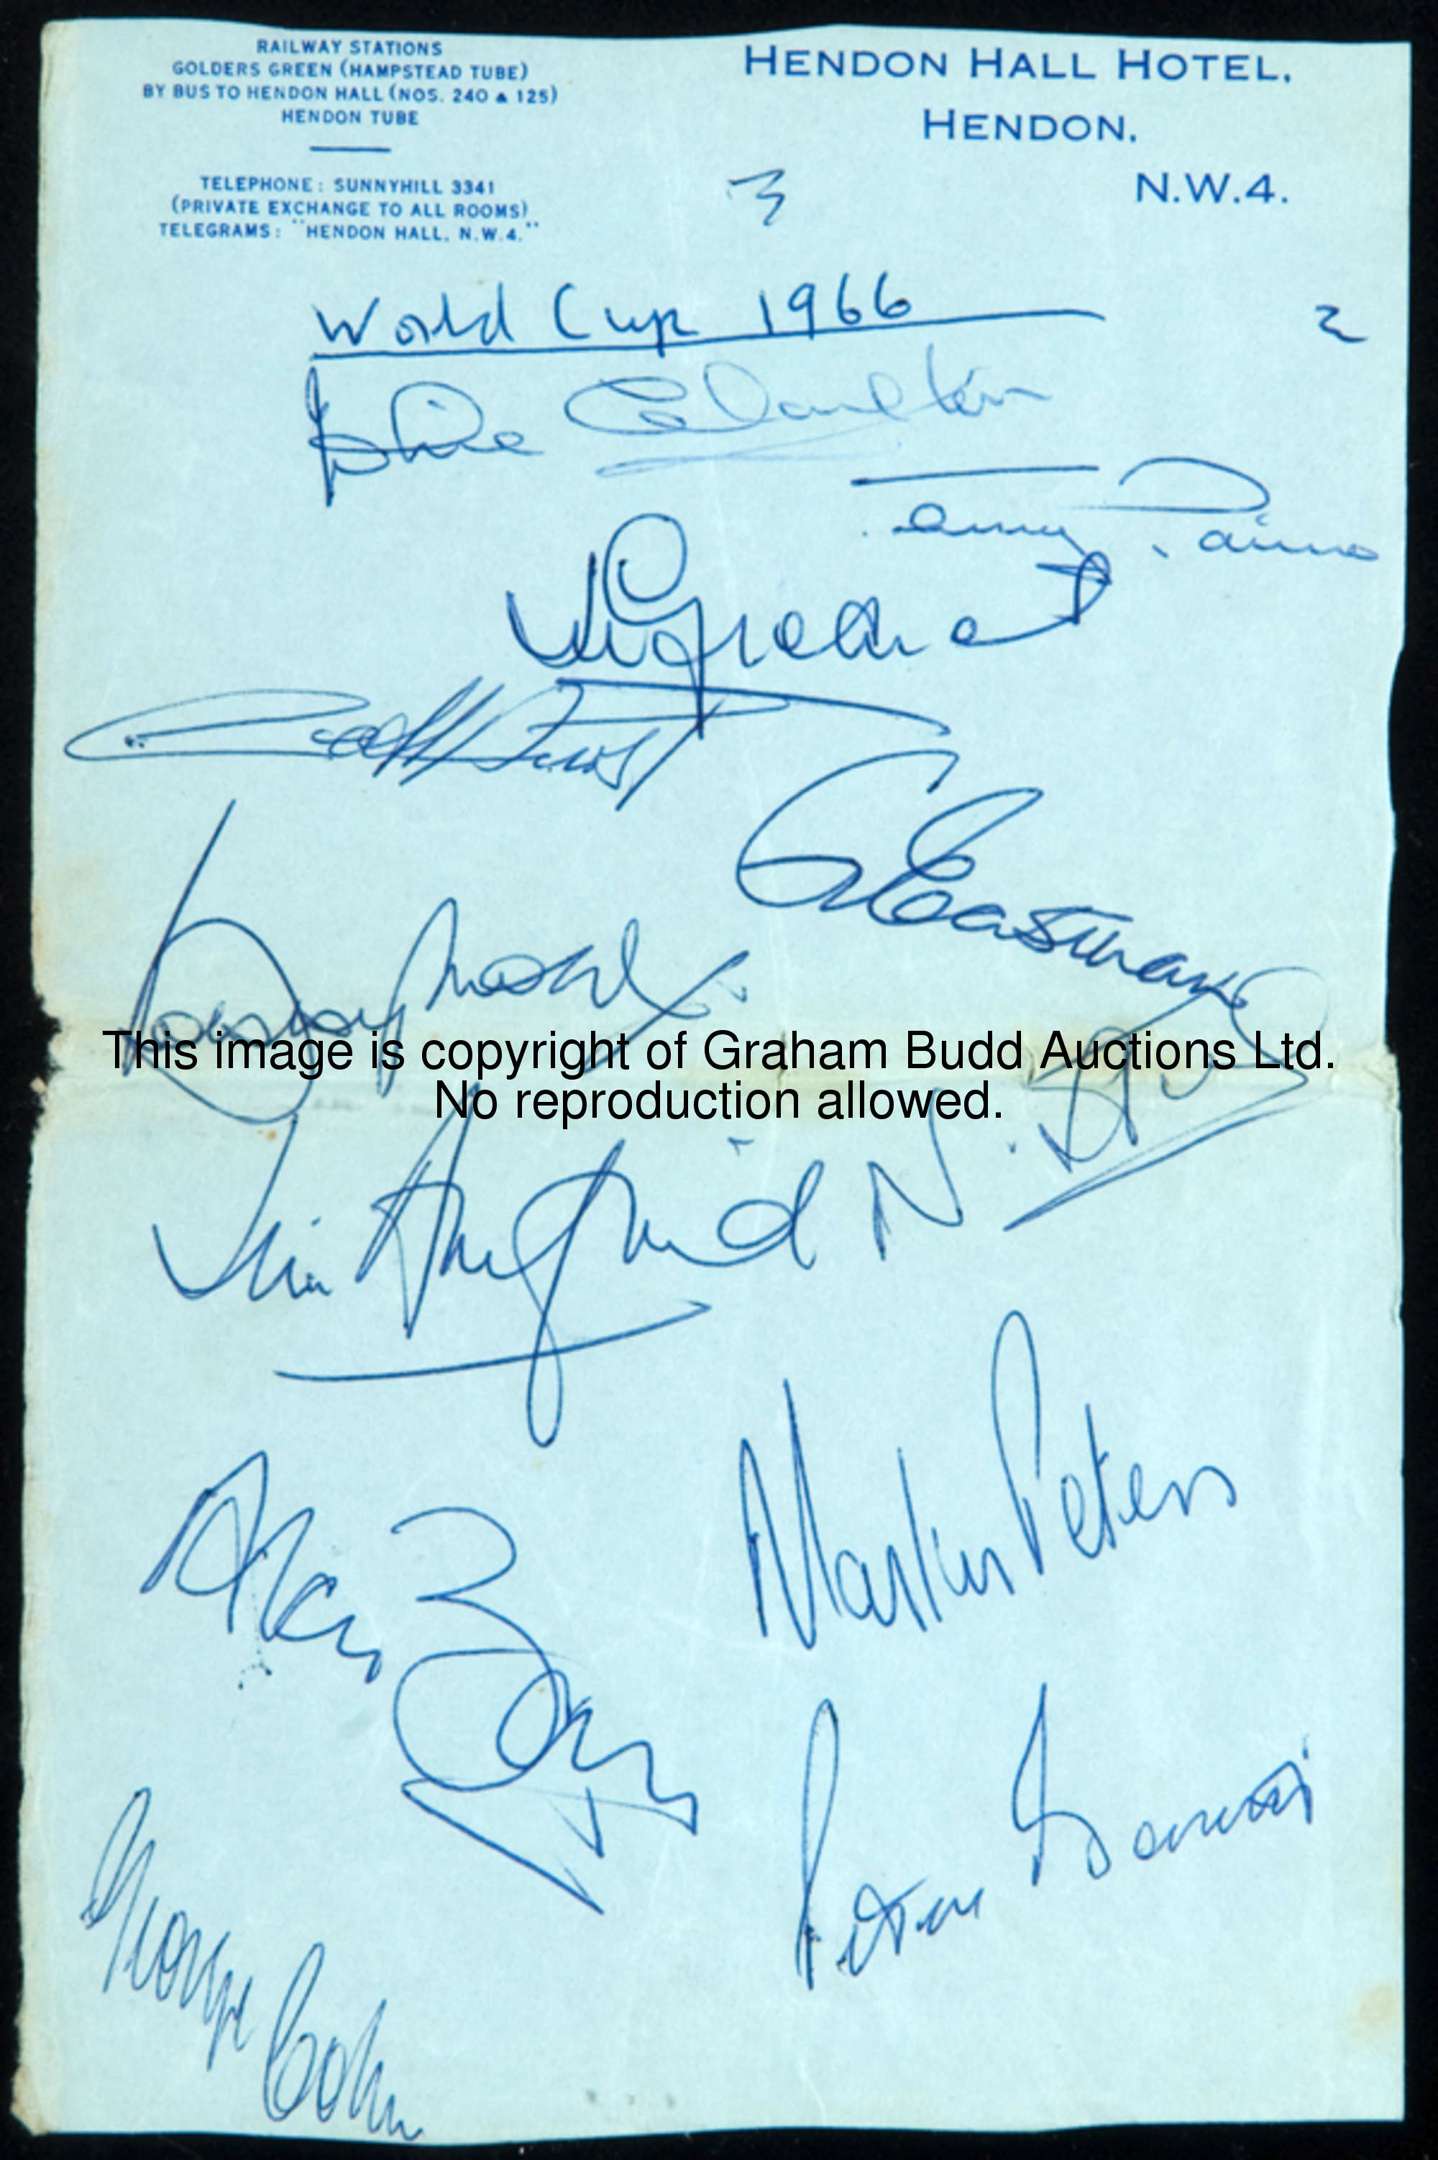 RAILWAY STATIONS
GOLDERS GREEN (HAMPSTEAD TUBE)
BY BUS TO HENDON HALL (NOS. 240 & 125)
HENDON TUBE
TELEPHONE: SUNNYHILL 3341
(PRIVATE EXCHANGE TO ALL ROOMS)
TELEGRAMS: "HENDON HALL, N.W.4."
HENDON HALL HOTEL,
HENDON,
N.W.4.
3
World Cup 1966
2
Charlton
Terry Paine
J Greaves
Geoff Hurst
G Eastham
Bobby Moore
This image is copyright of Graham Budd Auctions Ltd.
No reproduction allowed.
Jim Armfield
N. Stiles
Martin Peters
Alan Ball
Peter Bonetti
George Cohen